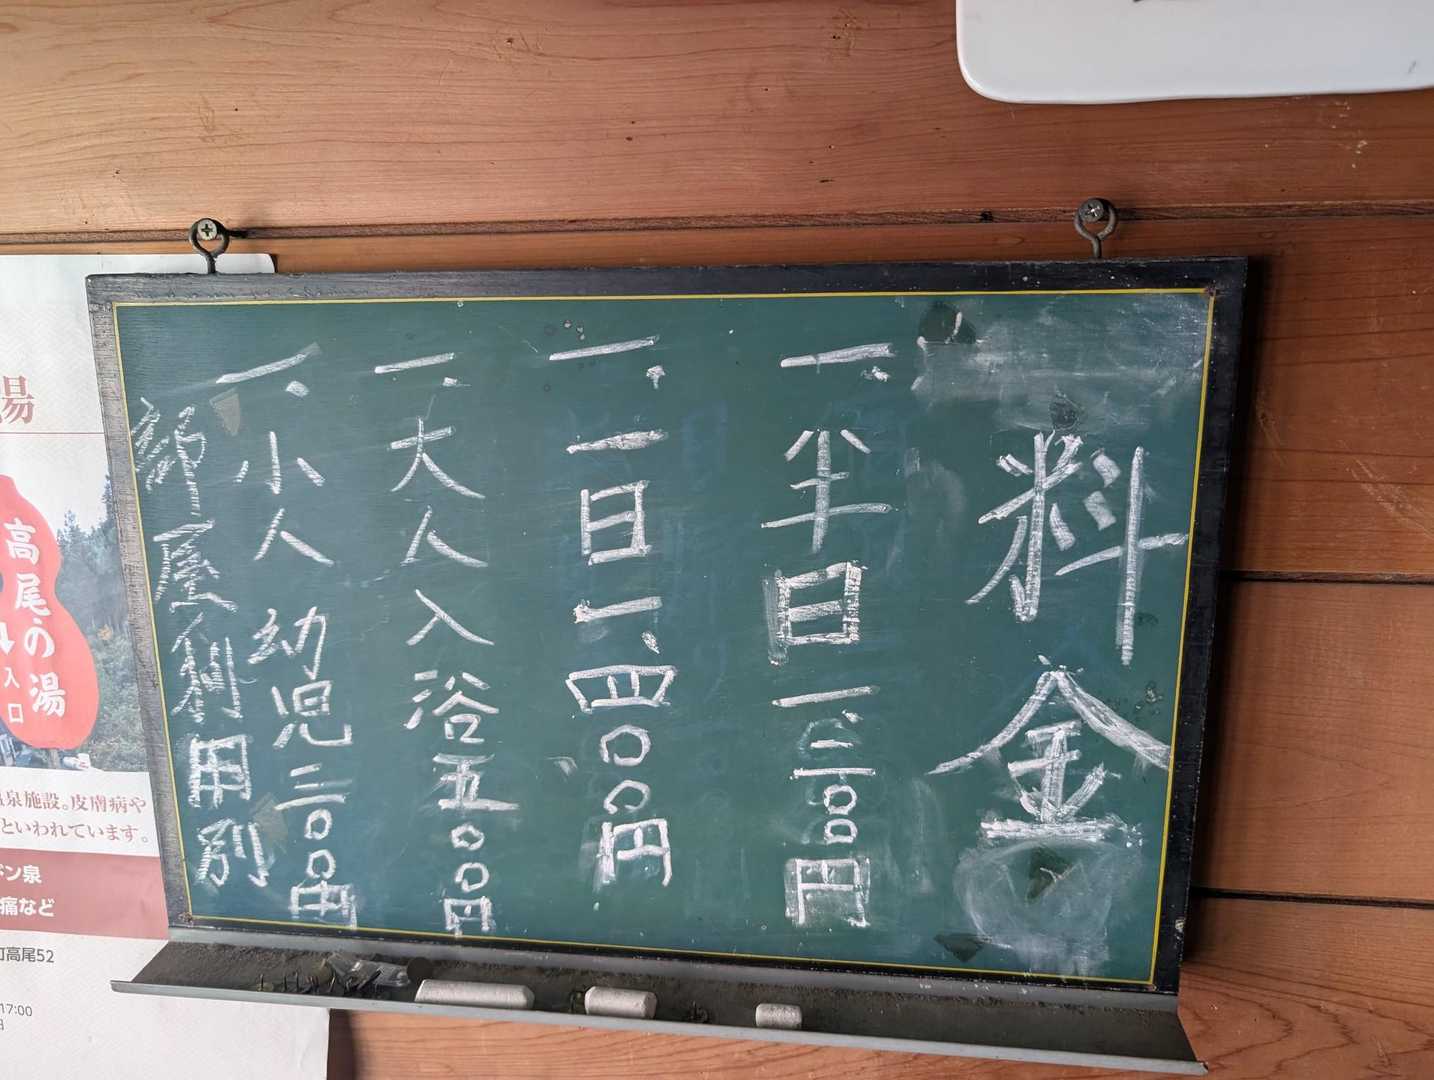 料金
一、半日一、二〇〇円
一、一日一、四〇〇円
一、大人入浴五〇〇円
一、小人幼児三〇〇円
部屋利用別
湯
高尾の湯
入口
泉施設。皮膚病や
といわれています。
ン泉
痛など
高尾52
17:00